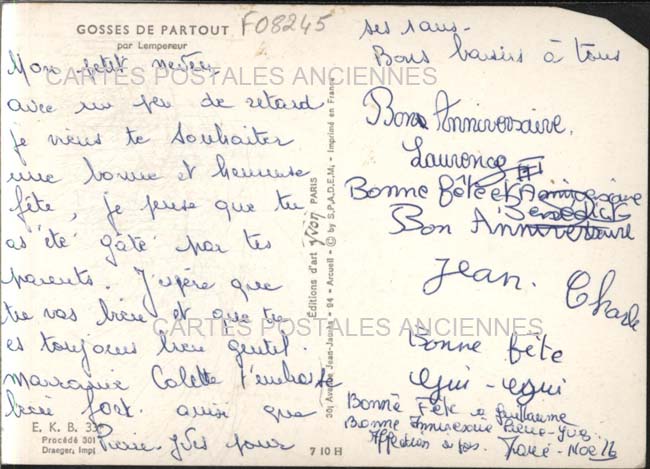 GOSSES DE PARTOUT
par Lempereur
F08245
Mon petit neveu,
avec un peu de retard
je viens te souhaiter
une bonne et heureuse
fête, je pense que tu
as été gâté par tes
parents. J'espère que
tu vas bien et que tu
es toujours bien gentil.
marraine Colette t'embrasse
bien fort. ainsi que
Pierre-Yves pour
E. K. B. 33
Procédé 301
Draeger, Imp
7 10 H
Éditions d'art yvon PARIS
30, Avenue Jean-Jaurès - 94 - Arcueil - © by S.P.A.D.E.M. - Imprimé en France
ses
Bons baisers à tous
Bon Anniversaire,
Laurence
Bonne fête et Anniversaire
Bénédicte
Bon Anniversaire
Jean. Charle
Bonne fête
Gui-Gui
Bonne Fête à Guillaume
Bonne Anniversaire Pierre-Yves
Affection à
Marie-Noelle
CARTES POSTALES ANCIENNES
CARTES POSTALES ANCIENNES